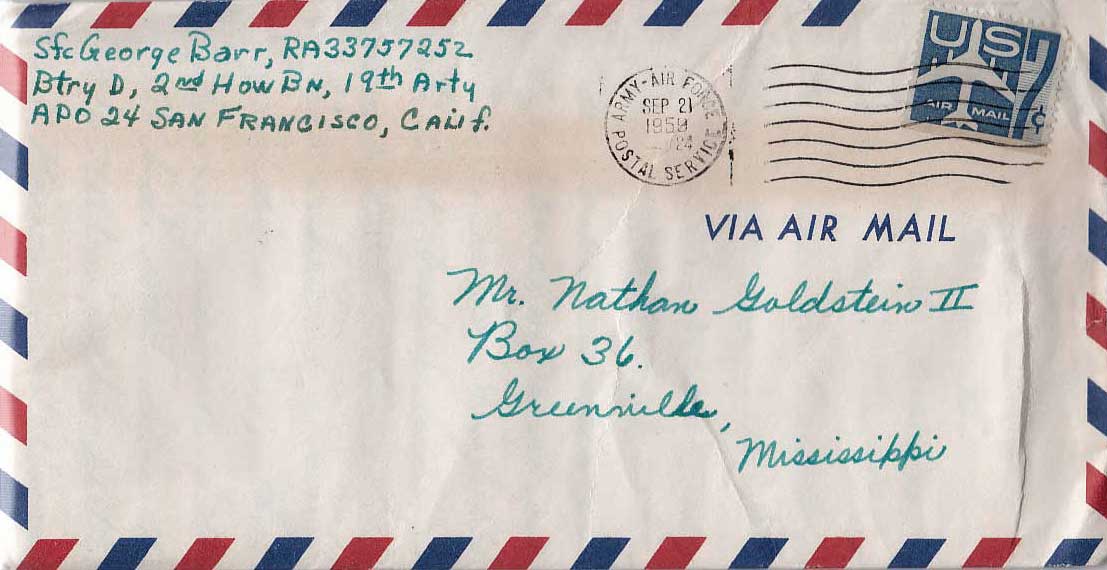 Sfc George Barr, RA33757252
Btry D, 2nd How Bn, 19th Arty
APO 24 San Francisco, Calif.
ARMY-AIR FORCE
SEP 21
1959
24
POSTAL SERVICE
US
7¢
AIR MAIL
VIA AIR MAIL
Mr. Nathan Goldstein II
Box 36.
Greenville,
Mississippi